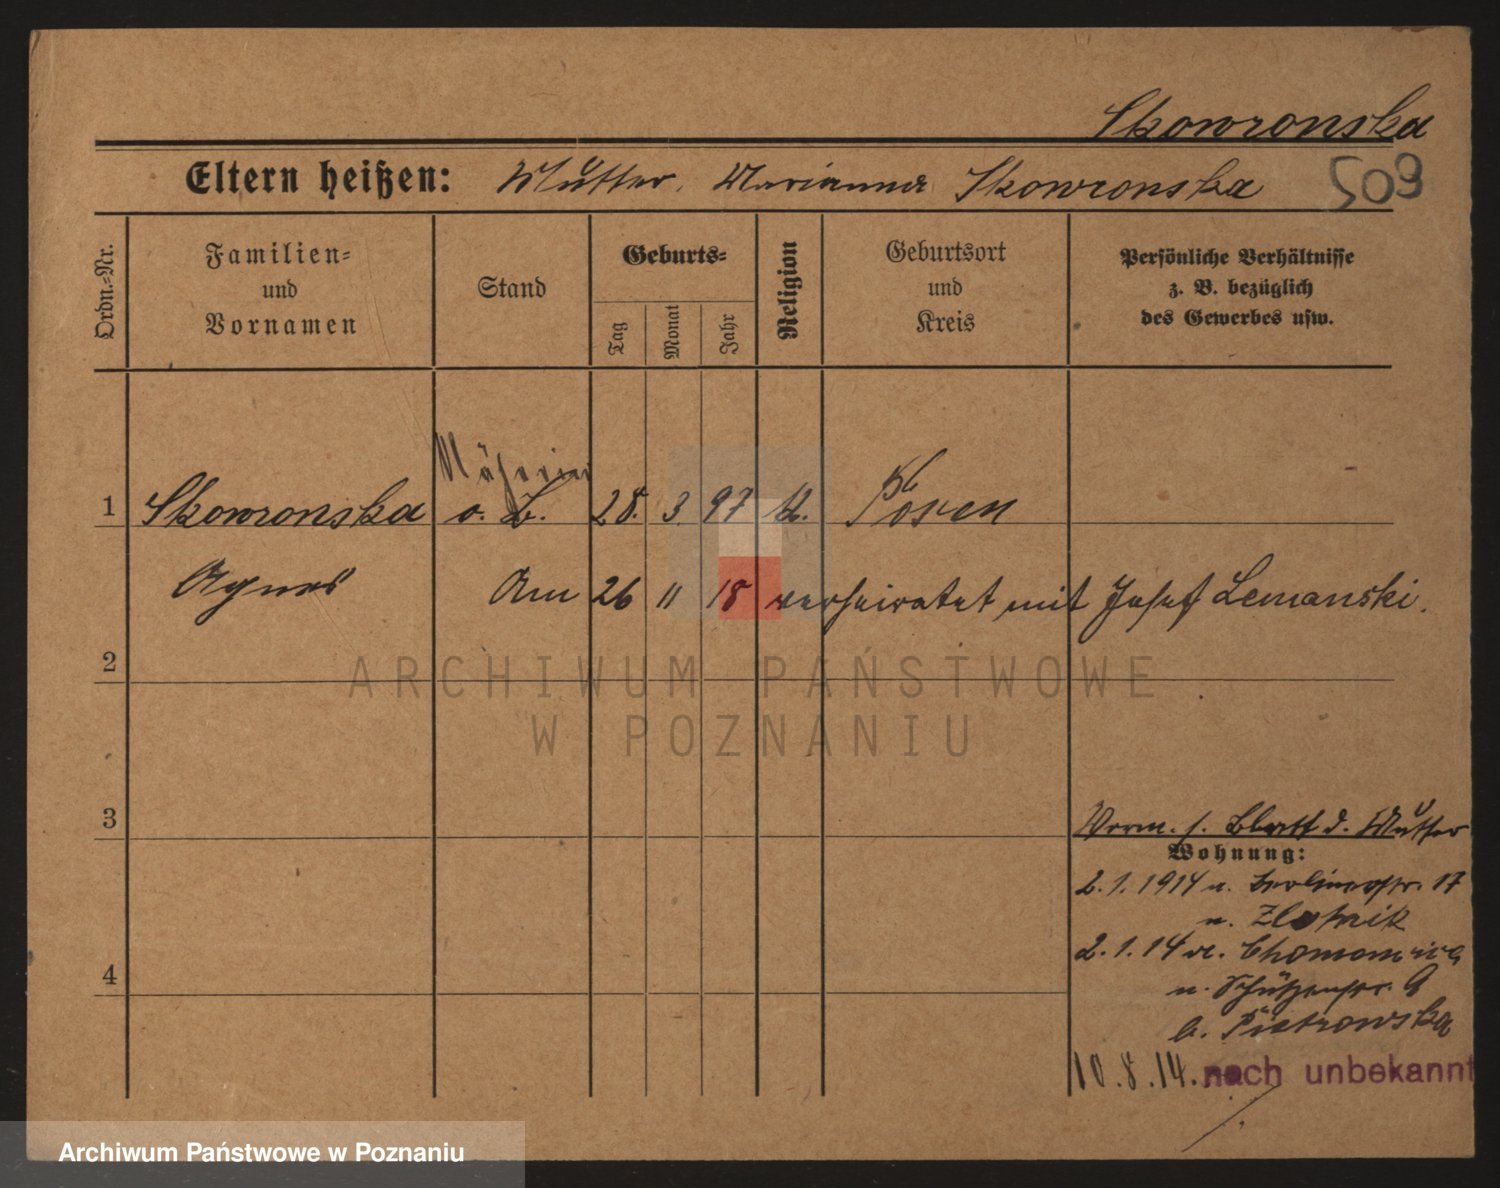 Skowronska
Eltern heißen: Mutter. Marianna Skowronska 509
Ordn.-Nr.
Familien-
und
Vornamen
Stand
Geburts-
Tag
Monat
Jahr
Religion
Geburtsort
und
Kreis
Persönliche Verhältnisse
z. B. bezüglich
des Gewerbes usw.
Näherin
1 Skowronska o. B. 28. 3. 97 k. Posen
Agnes Am 26 11 18 verheiratet mit Josef Lemanski.
2
ARCHIWUM PAŃSTWOWE
W POZNANIU
3 Vorm. s. Blatt d. Mutter
Wohnung:
2.1.1914 n. Berlinerstr. 17
Zlotnik
2.1.14 v.
4 n. Schützenstr. 9
b. Pietrowska
10.8.14. nach unbekannt
Archiwum Państwowe w Poznaniu